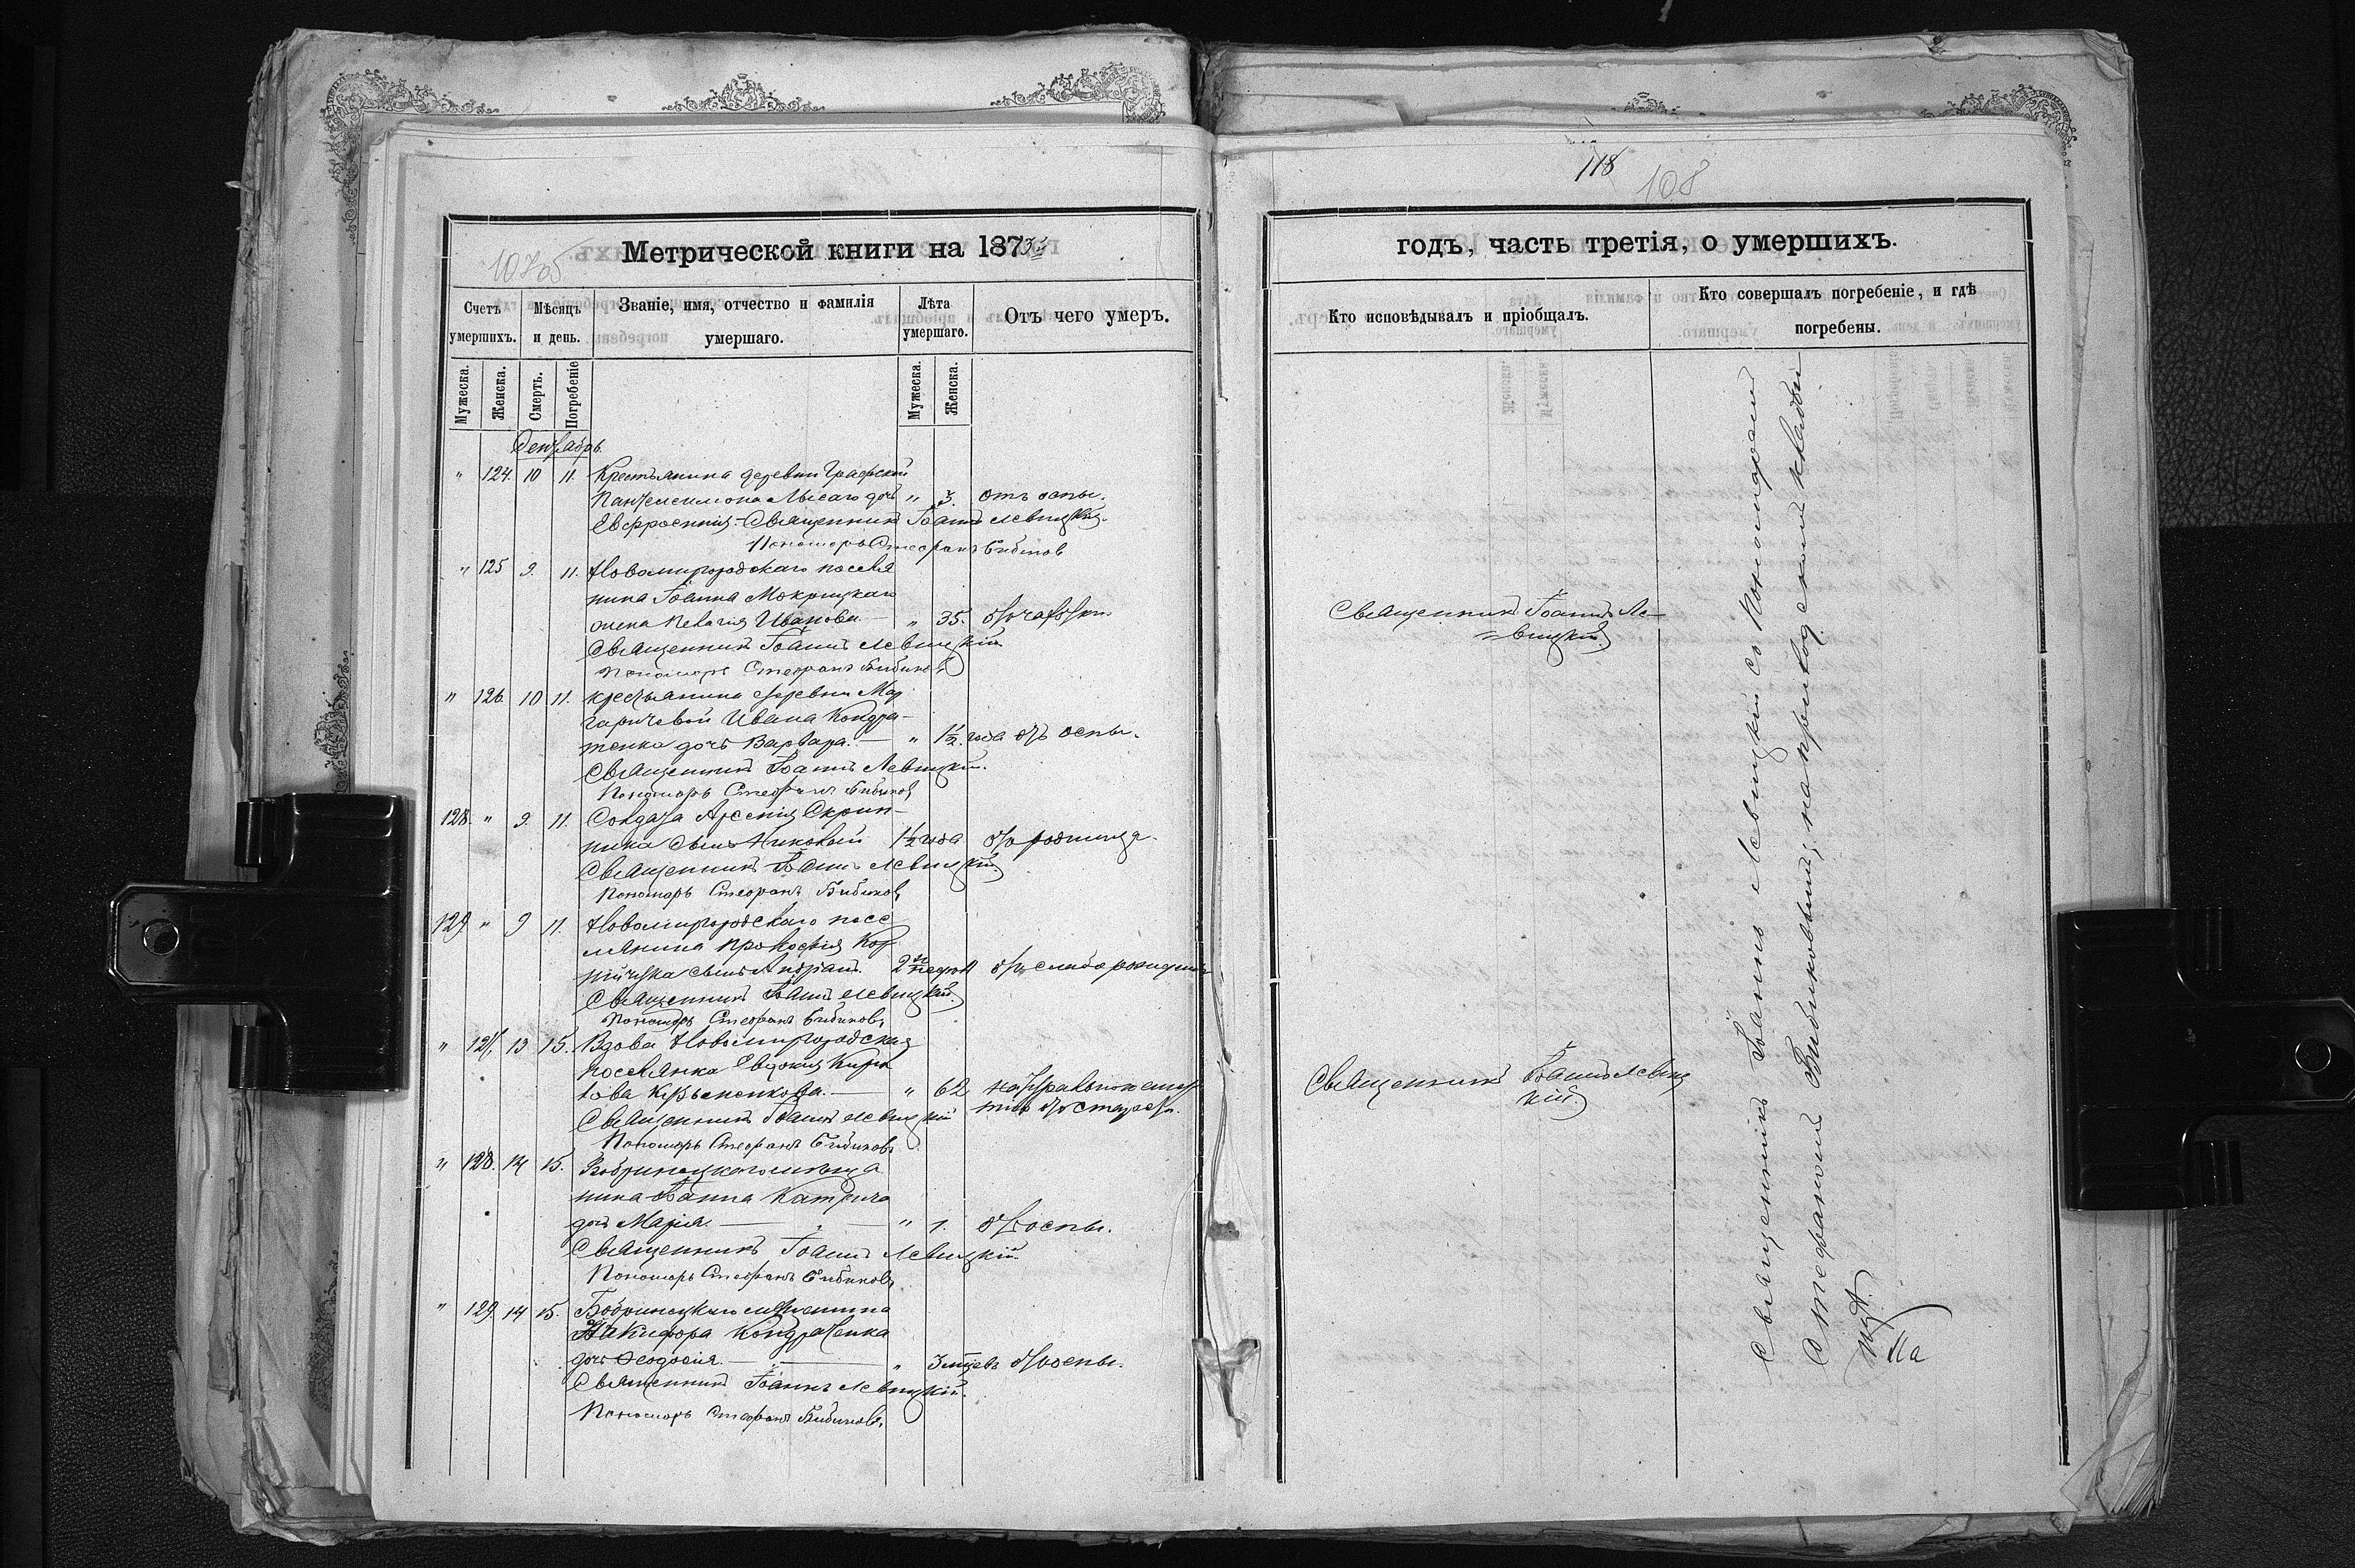 118
108
1070б
Метрической книги на 1873й
Счетъ умершихъ.
Мѣсяцъ и день.
Званіе, имя, отчество и фамилія умершаго.
Лѣта умершаго.
Отъ чего умеръ.
Мужеска.
Женска.
Смерть.
Погребеніе
Мужеска.
Женска.
Декабрь
" 124. 10 11. Крестьянина деревни Графской
Пантелеимона Лысаго дочь " 3. отъ оспы.
Евфросинія. Священникъ Іоаннъ Левицкій.
Пономарь Стефанъ Бибиковъ
" 125 9. 11. Новомиргородскаго поселя
нина Іоанна Мокрицкаго
жена Пелагія Иванова — " 35.
Священникъ Іоаннъ Левицкій
Пономарь Стефанъ Бибиковъ
" 126. 10 11. Крестьянина деревни Мар
гаричевой Ивана Кондра-
тенка дочь Варвара. — " 1½ года отъ оспы.
Священникъ Іоаннъ Левицкій.
Пономарь Стефанъ Бибиковъ
128. " 9. 11. Солдата Арсенія Скрип-
ника сынъ Николай 1½ года отъ родимца.
Священникъ Іоаннъ Левицкій
Пономарь Стефанъ Бибиковъ
129 " 9 11. Новомиргородскаго посе
лянина Прокофія Кор
нійчука сынъ 2 недѣл отъ слаборожденія
Священникъ Іоаннъ Левицкій
Пономарь Стефанъ Бибиковъ
" 127. 13 15. Вдова Новомиргородская
поселянка Евдокія Кири
лова — " 62 натуральною смер
тію отъ старости.
Священникъ Іоаннъ Левицкій
Пономарь Стефанъ Бибиковъ
" 128. 14 15. Бобринецкаго мѣща
нина Іоанна Катрича
дочь Марія. — " 1. отъ оспы.
Священникъ Іоаннъ Левицкій.
Пономарь Стефанъ Бибиковъ
" 129. 14 15. Бобринецкаго мѣщанина
Никифора Кондратенка
дочь Ѳеодосія. — " 3 мѣсяцевъ отъ оспы.
Священникъ Іоаннъ Левицкій.
Пономарь Стефанъ Бибиковъ
годъ, часть третія, о умершихъ.
Кто исповѣдывалъ и пріобщалъ.
Кто совершалъ погребеніе, и гдѣ погребены.
Священникъ Іоаннъ Ле-
=вицкій
Священникъ Іоаннъ Левиц
кій.
Священникъ Іоаннъ Левицкій со Пономаремъ
Стефаномъ Бибиковымъ, на приходскомъ кладби
щѣ.
На